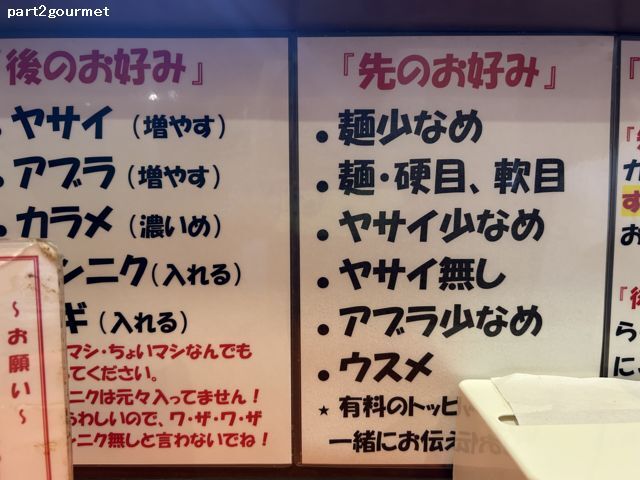 part2gourmet
後のお好み』
・ヤサイ（増やす）
・アブラ（増やす）
・カラメ（濃いめ）
ンニク（入れる）
ギ（入れる）
マシ・ちょいマシなんでも
てください。
ニクは元々入ってません！
らわしいので、ワ・ザ・ワ・ザ
ンニク無しと言わないでね！
～お願い～
『先のお好み』
・麺少なめ
・麺・硬目、軟目
・ヤサイ少なめ
・ヤサイ無し
・アブラ少なめ
・ウスメ
★有料のトッピ
一緒にお伝え